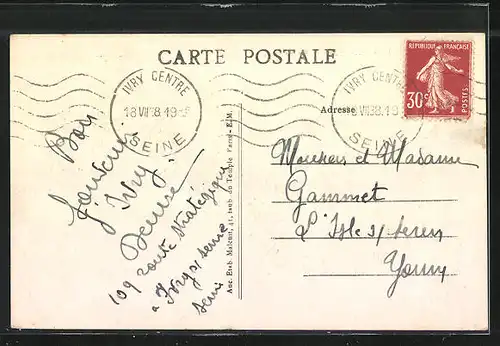 CARTE POSTALE
IVRY CENTRE
18 VII 38 19
SEINE
IVRY CENTRE
VII 38 19
SEINE
RÉPUBLIQUE FRANÇAISE
30c
POSTES
Adresse
Bon
Souvenir
Ivry.
Denise
109 route stratégique
à Ivry s/ Seine
Seine
Anc. Etab. Malcuit, 41, faub. du Temple Paris - E.M.
Monsieur et Madame
Gammet
L'Isle s/ Serein
Yonne